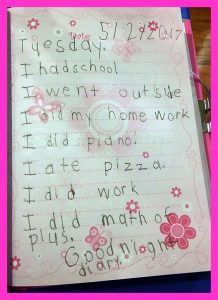 Date: 5/29/2017
Tuesday.
I had school
I went outside
I did my home work
I did piano.
I ate pizza.
I did work
I did math of
plus.
Good night
diary.